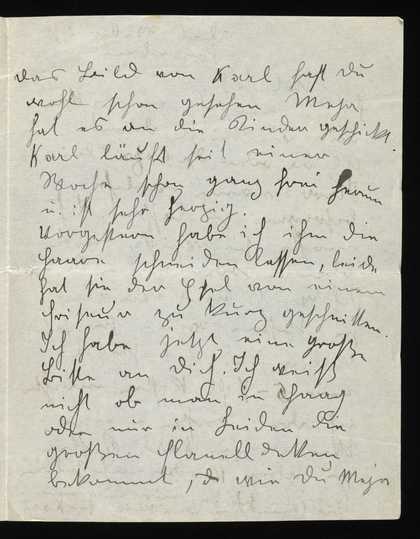 das Bild von Karl hast du
wohl schon gesehen Mesa
hat es an die Kinder geschickt.
Karl läuft seit einer
Woche schon ganz frei herum
u. ist sehr herzig.
Vorgestern habe ich ihm die
Haare schneiden lassen, leider
hat sie der Esel von einem
Friseur zu kurz geschnitten.
Ich habe jetzt eine große
Bitte an Dich. Ich weiß
nicht ob man in Haag
oder nur in Leiden die
großen Flanell decken
bekommt, wie Du Mesa